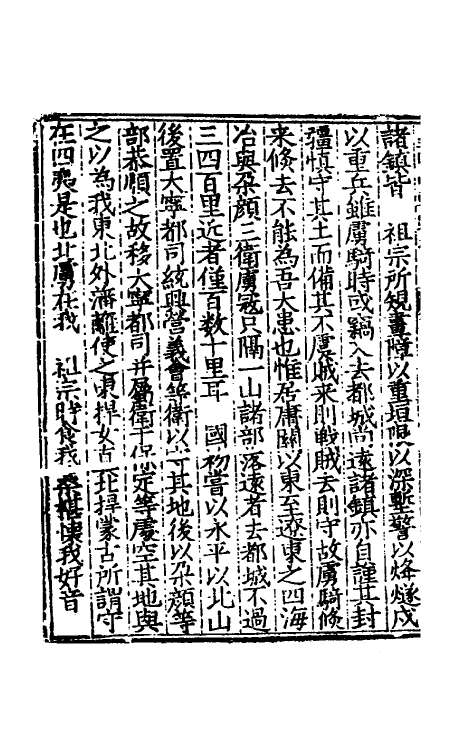 諸鎮皆　祖宗所規畫障以重垣限以深塹警以烽燧戍
以重兵雖虜騎時或竊入去都城尚遠諸鎮亦自謹其封
疆慎守其土而備其不虞賊來則戰賊去則守故虜騎倏
來倏去不能為吾大患也惟居庸關以東至遼東之四海
冶與朵顏三衛虜冦只隔一山諸部落遠者去都城不過
三四百里近者僅百数十里耳　國初嘗以永平以北山
後置大寧都司統興營義會等衛以守其地後以朵顏等
部恭順之故移大寧都司并屬衛于保定等處空其地與
之以為我東北外藩籬使之東捍女直北捍蒙古所謂守
在四夷是也北虜在我　祖宗時食我桑椹懷我好音